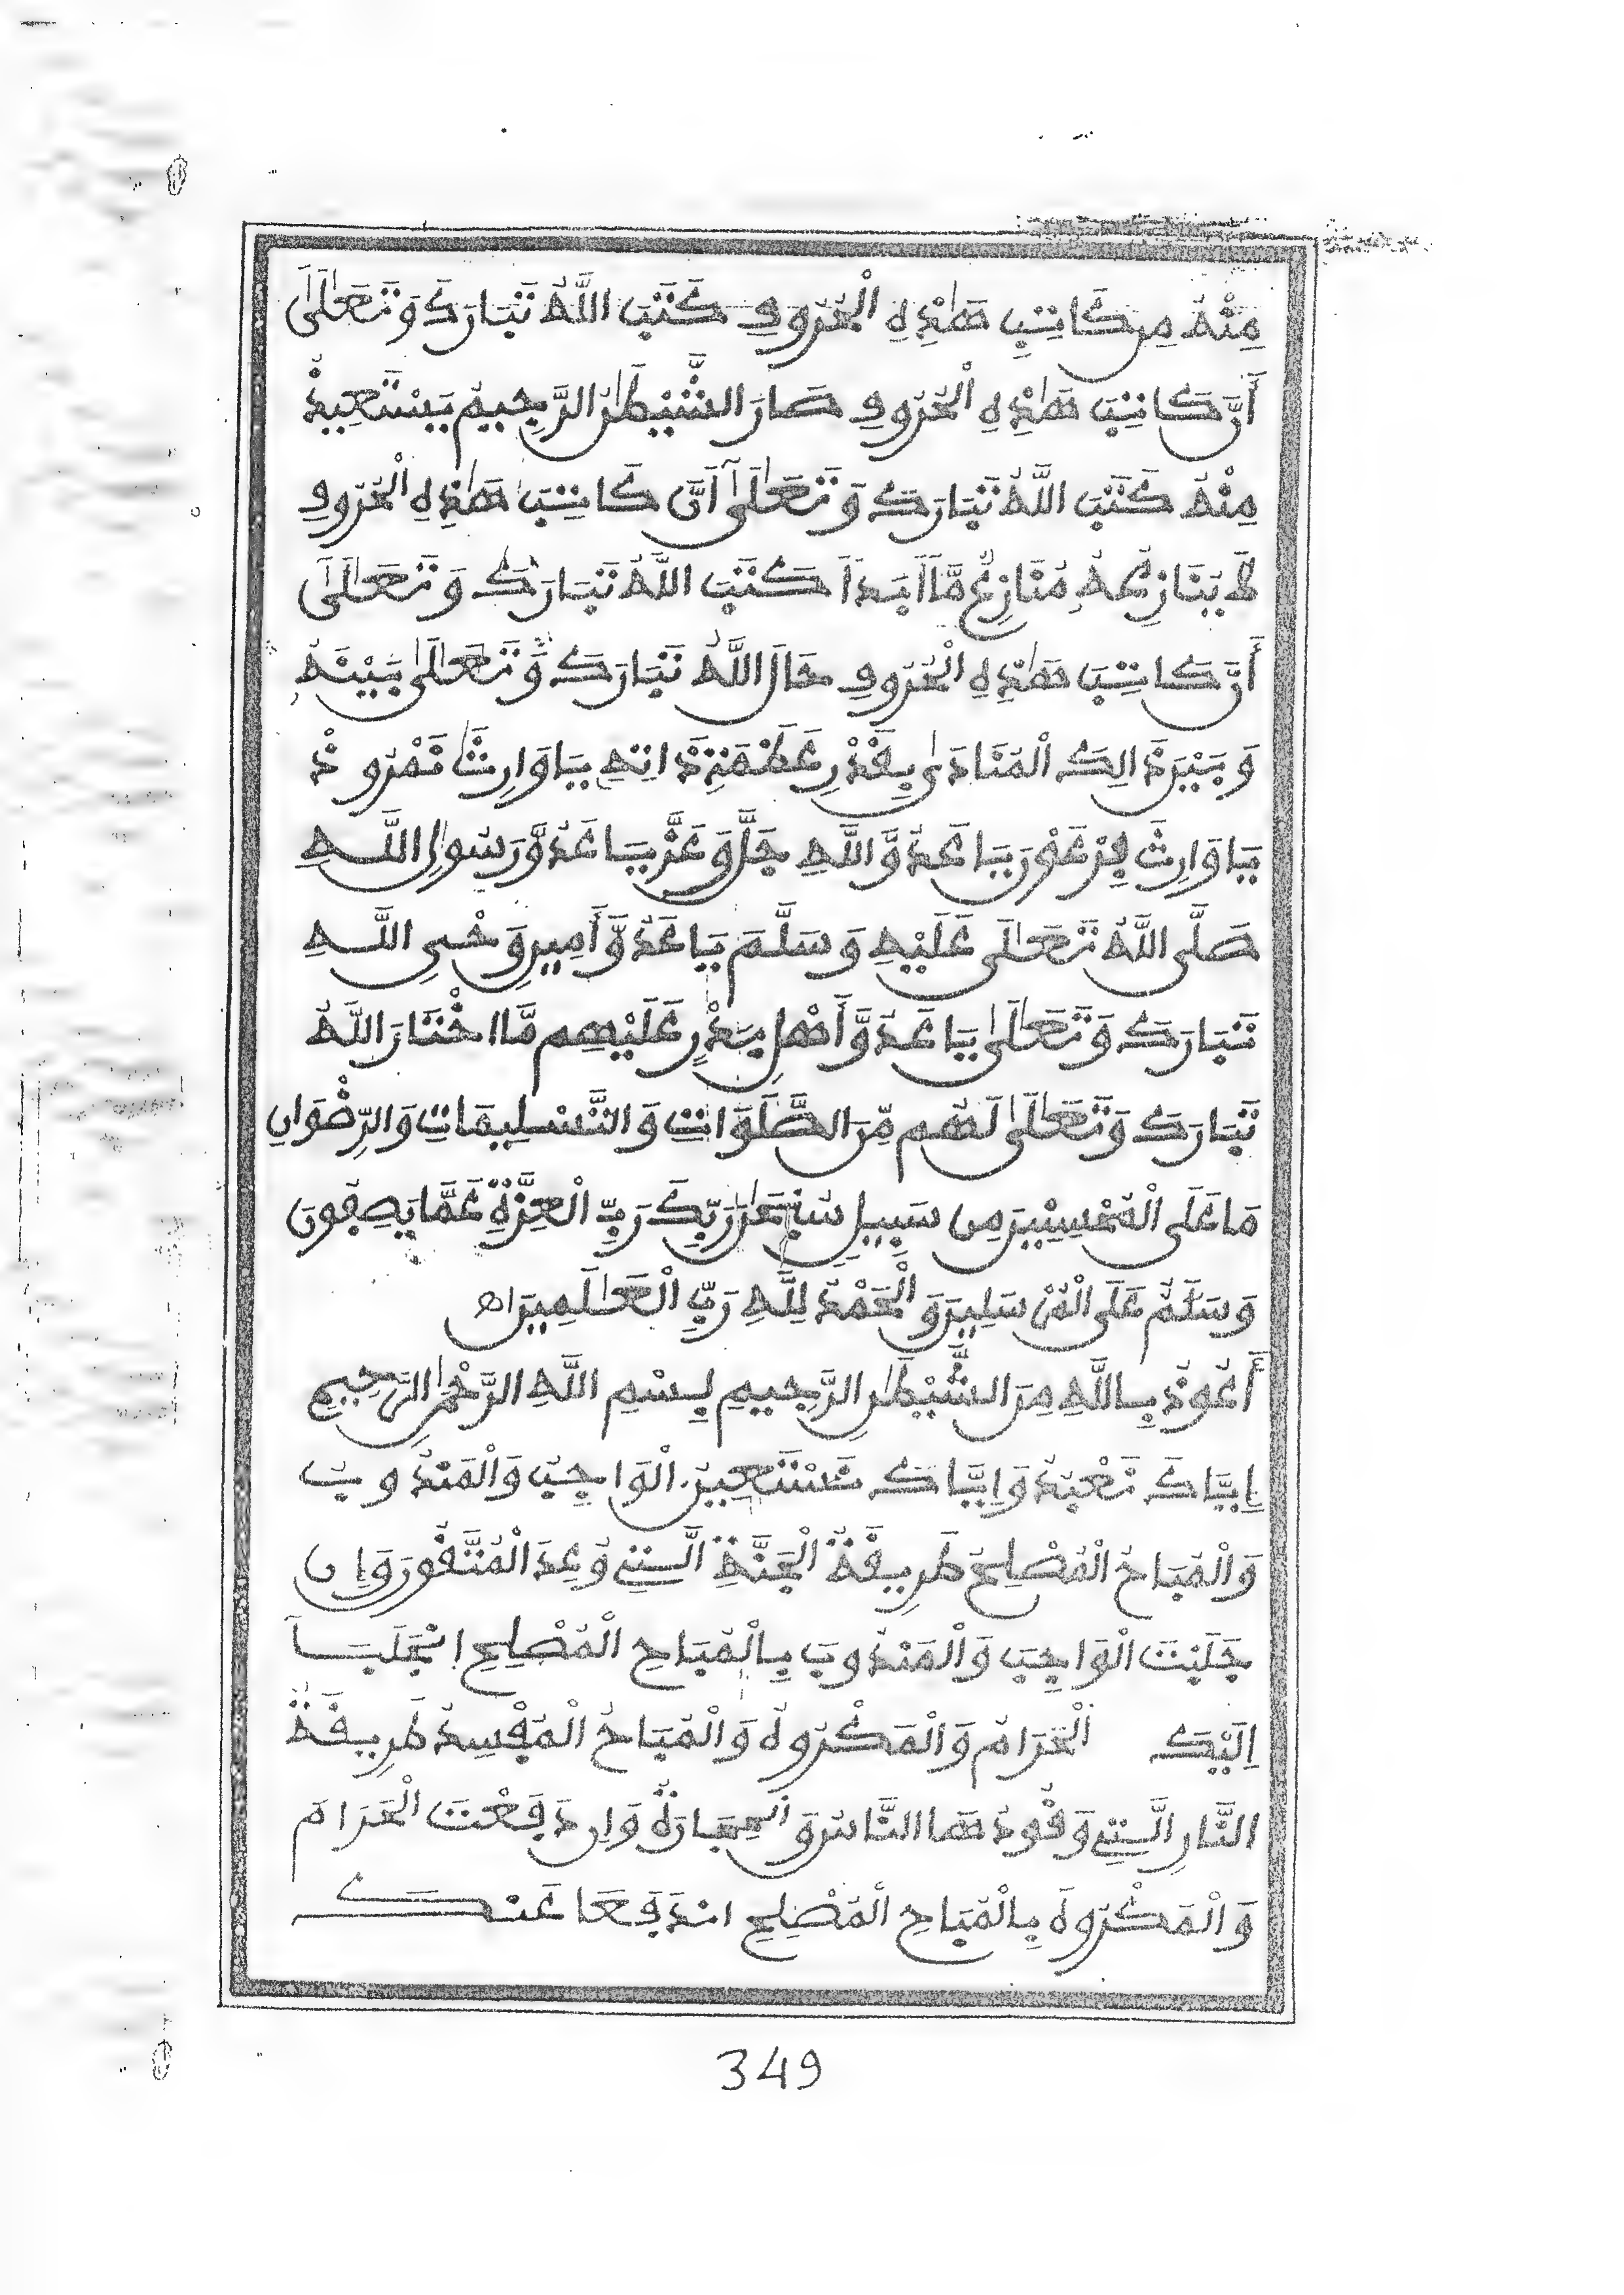 مِنْهُ مِن كَاتِبِ هَٰذِهِ الْحُرُوفِ كَتَبَ اللَّهُ تَبَارَكَ وَتَعَالَىٰ
أَنَّ كَاتِبَ هَٰذِهِ الْحُرُوفِ صَارَ الشَّيْطَٰنُ الرَّجِيمُ يَسْتَعِيذُ
مِنْهُ كَتَبَ اللَّهُ تَبَارَكَ وَتَعَالَىٰ أَنَّ كَاتِبَ هَٰذِهِ الْحُرُوفِ
لَا يُنَازِعُهُ مُنَازِعٌ مَّا أَبَدًا كَتَبَ اللَّهُ تَبَارَكَ وَتَعَالَىٰ
أَنَّ كَاتِبَ هَٰذِهِ الْحُرُوفِ حَالَ اللَّهُ تَبَارَكَ وَتَعَالَىٰ بَيْنَهُ
وَبَيْنَ ذَالِكَ الْمُنَادَىٰ بِقَدْرِ عَظَمَةِ ذَاتِهِ يَا وَارِثَ نَمْرُوذَ
يَا وَارِثَ فِرْعَوْنَ يَا عَدُوَّ اللَّهِ جَلَّ وَعَزَّ يَا عَدُوَّ رَسُولِ اللَّهِ
صَلَّى اللَّهُ تَعَالَى عَلَيْهِ وَسَلَّمَ يَا عَدُوَّ أَمِينِ وَحْىِ اللَّهِ
تَبَارَكَ وَتَعَالَىٰ يَا عَدُوَّ أَهْلِ بَدْرٍ عَلَيْهِم مَّا اخْتَارَ اللَّهُ
تَبَارَكَ وَتَعَالَىٰ لَهُم مِّنَ الصَّلَوَاتِ وَالتَّسْلِيمَاتِ وَالرِّضْوَانِ
مَا عَلَى الْمُحْسِنِينَ مِن سَبِيلٍ سُبْحَٰنَ رَبِّكَ رَبِّ الْعِزَّةِ عَمَّا يَصِفُونَ
وَسَلَٰمٌ عَلَى الْمُرْسَلِينَ وَالْحَمْدُ لِلَّهِ رَبِّ الْعَٰلَمِينَ اهـ
أَعُوذُ بِاللَّهِ مِنَ الشَّيْطَٰنِ الرَّجِيمِ بِسْمِ اللَّهِ الرَّحْمَٰنِ الرَّحِيمِ
إِيَّاكَ نَعْبُدُ وَإِيَّاكَ نَسْتَعِينُ الْوَاجِبُ وَالْمَنْدُوبُ
وَالْمُبَاحُ الْمُصْلِحُ طَرِيقَةُ الْجَنَّةِ الَّتِي وُعِدَ الْمُتَّقُونَ وَإِن
جَلَبْتَ الْوَاجِبَ وَالْمَنْدُوبَ بِالْمُبَاحِ الْمُصْلِحِ انْجَلَبَا
اِلَيْكَ الْحَرَامُ وَالْمَكْرُوهُ وَالْمُبَاحُ الْمُفْسِدُ طَرِيقَةُ
النَّارِ الَّتِي وَقُودُهَا النَّاسُ وَالْحِجَارَةُ وَإِن دَفَعْتَ الْحَرَامَ
وَالْمَكْرُوهَ بِالْمُبَاحِ الْمُصْلِحِ انْدَفَعَا عَنْكَ
349